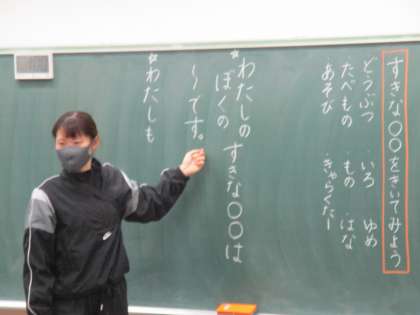 すきな○○をきいてみよう
どうぶつ ・いろ ・ゆめ
たべもの ・もの ・はな
・あそび ・きゃらくたー
☆わたしの すきな○○は
ぼくの
〜です。
☆わたしも